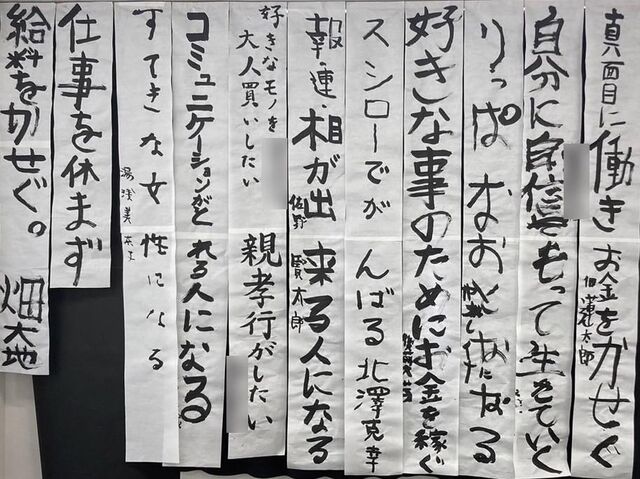 真面目に働きお金をかせぐ
自分に自信をもって生きていく
りっぱなおとなになる
好きな事のためにお金を稼ぐ
スシローでがんばる 北澤克幸
報・連・相が出来る人になる
佐野賢太郎
好きなモノを
大人買いしたい
親孝行がしたい
コミュニケーションがとれる人になる
すてきな女性になる
仕事を休まず
給料をかせぐ。 畑大地